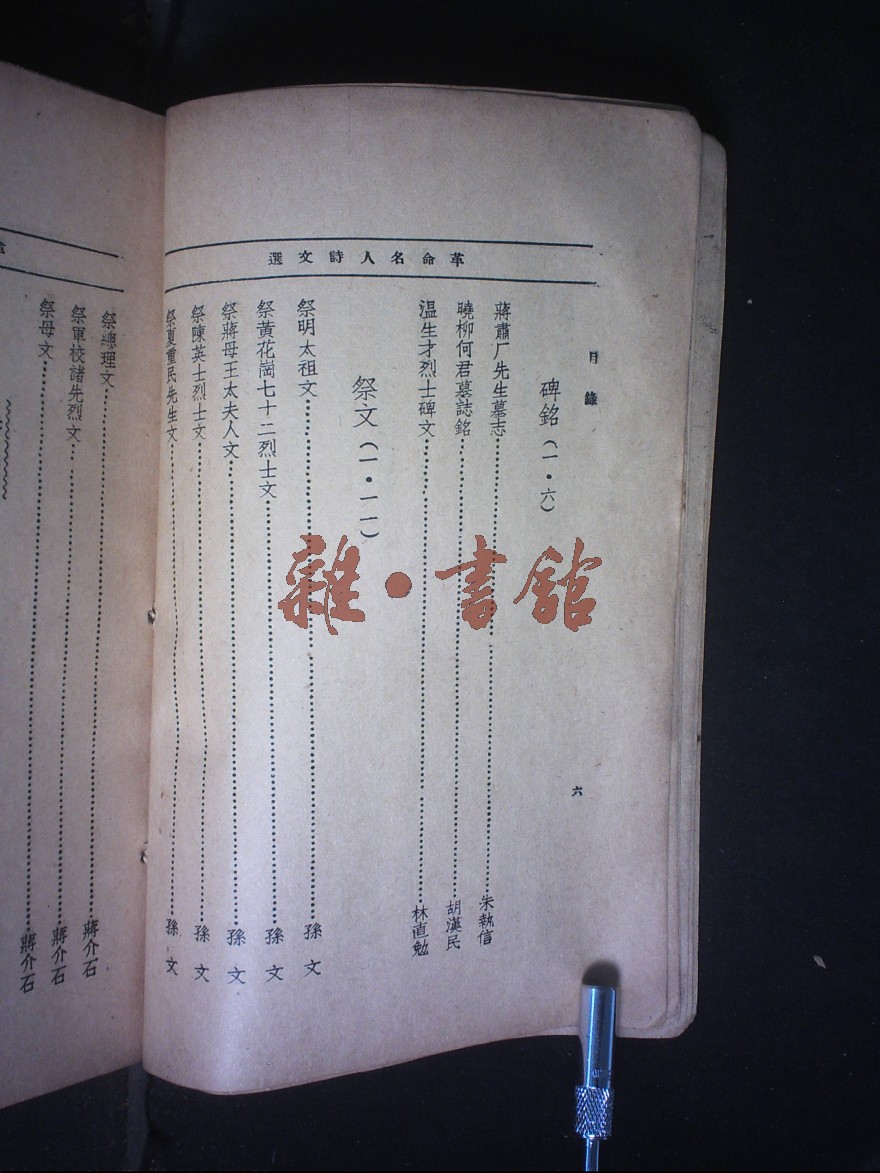 革命名人詩文選
目錄
六
碑銘（一・六）
蔣肅厂先生墓志………朱執信
曉柳何君墓誌銘………胡漢民
温生才烈士碑文………林直勉
祭文（一・一一）
祭明太祖文………孫文
祭黃花崗七十二烈士文………孫文
祭蔣母王太夫人文………孫文
祭陳英士烈士文………孫文
祭夏重民先生文………孫文
祭總理文………蔣介石
祭軍校諸先烈文………蔣介石
祭母文………蔣介石
雜・書館